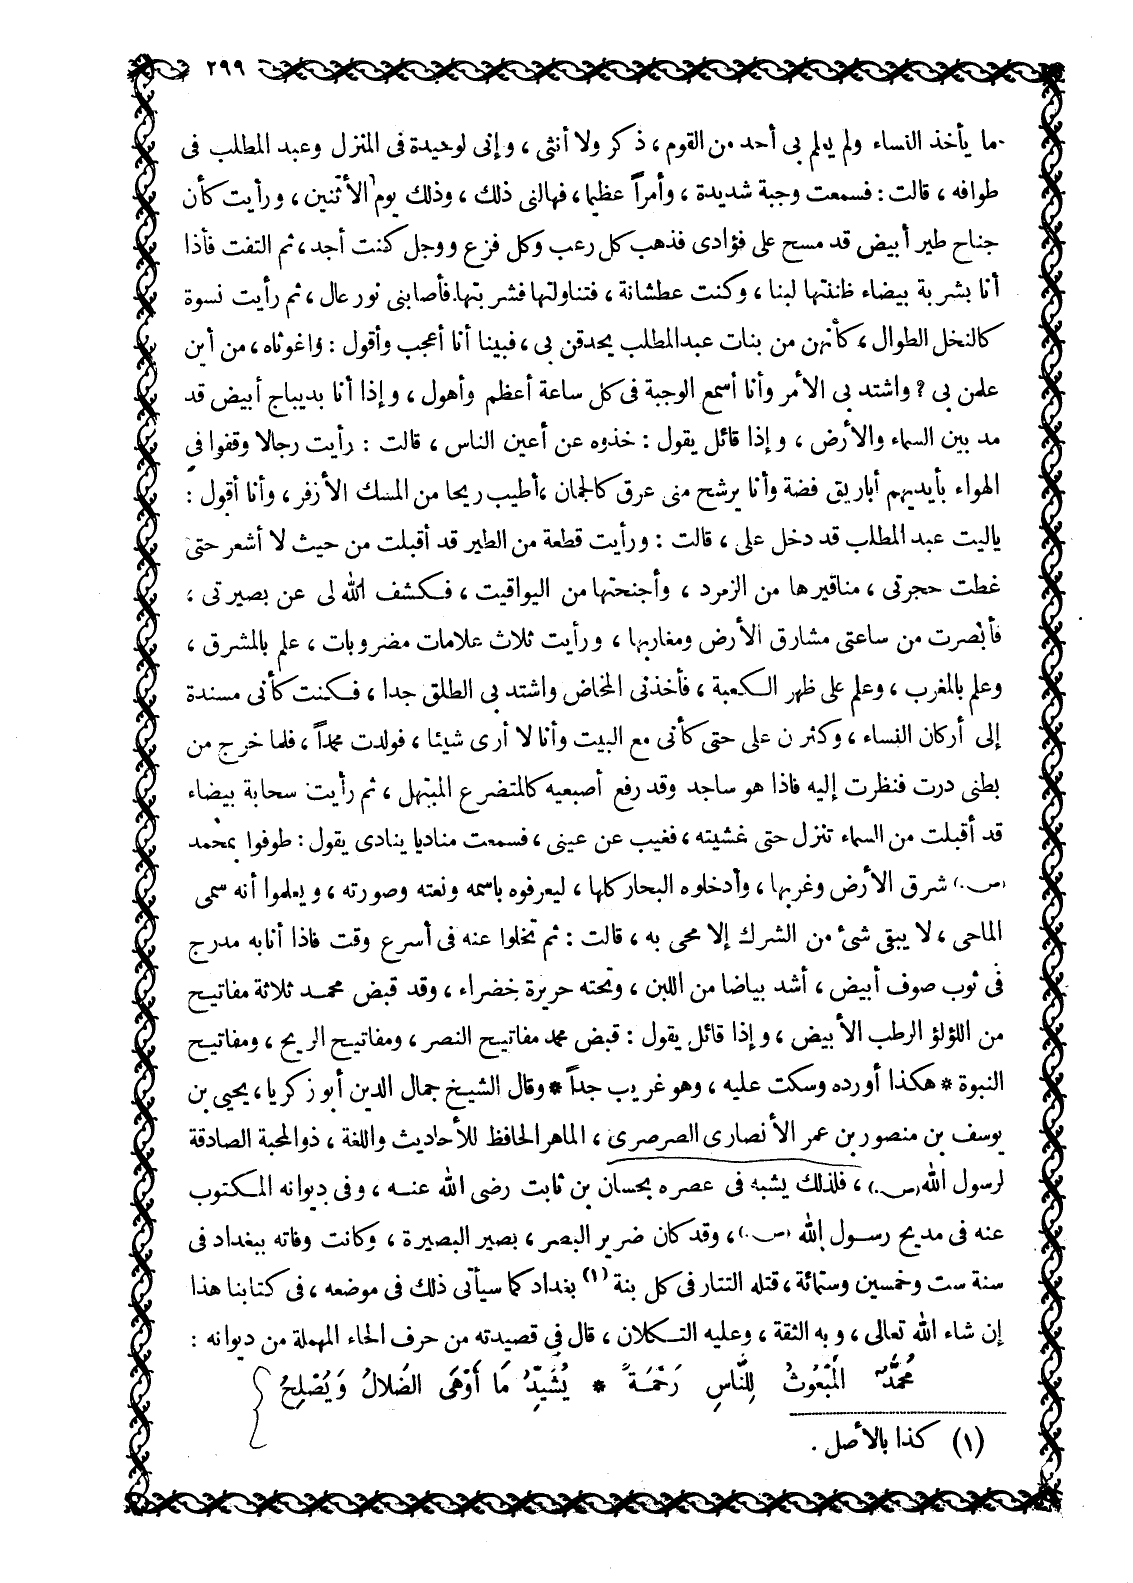 ٢٩٩
ما يأخذ النساء ولم يعلم بى أحد من القوم ، ذكر ولا أنثى ، وإنى لوحيدة فى المنزل وعبد المطلب فى
طوافه ، قالت : فسمعت وجبة شديدة ، وأمراً عظيما ، فهالنى ذلك ، وذلك يوم الأثنين ، ورأيت كأن
جناح طير أبيض قد مسح على فؤادى فذهب كل رعب وكل فزع ووجل كنت أجد ، ثم التفت فأذا
أنا بشربة بيضاء ظننتها لبنا ، وكنت عطشانة ، فتناولتها فشربتها.فأصابنى نور عال ، ثم رأيت نسوة
كالنخل الطوال ، كأنهن من بنات عبدالمطلب يحدقن بى ، فبينا أنا أعجب وأقول : واغوثاه ، من أين
علمن بى ? واشتد بى الأمر وأنا أسمع الوجبة فى كل ساعة أعظم وأهول ، وإذا أنا بديباج أبيض قد
مد بين السماء والأرض ، وإذا قائل يقول : خذوه عن أعين الناس ، قالت : رأيت رجالا وقفوا في
الهواء بأيديهم أباريق فضة وأنا يرشح منى عرق كالجمان ،أطيب ريحا من المسك الأزفر ، وأنا أقول :
ياليت عبد المطلب قد دخل على ، قالت : ورأيت قطعة من الطير قد أقبلت من حيث لا أشعر حتى
غطت حجرتى ، مناقيرها من الزمرد ، وأجنحتها من اليواقيت ، فكشف الله لى عن بصيرتى ،
فأبصرت من ساعتى مشارق الأرض ومغاربها ، ورأيت ثلاث علامات مضروبات ، علم بالمشرق ،
وعلم بالمغرب ، وعلم على ظهر الكعبة ، فأخذنى المخاض واشتد بى الطلق جدا ، فكنت كأنى مسندة
إلى أركان النساء ، وكثرن على حتى كأنى مع البيت وأنا لا أرى شيئا ، فولدت محمداً ، فلما خرج من
بطنى درت فنظرت إليه فاذا هو ساجد وقد رفع أصبعيه كالمتضرع المبتهل ، ثم رأيت سحابة بيضاء
قد أقبلت من السماء تنزل حتى غشيته ، فغيب عن عينى ، فسمعت مناديا ينادى يقول : طوفوا بمحمد
(ص) شرق الأرض وغربها ، وأدخلوه البحار كلها ، ليعرفوه باسمه ونعته وصورته ، ويعلموا أنه سمى
الماحى ، لا يبقى شئ من الشرك إلا محى به ، قالت : ثم تخلوا عنه فى أسرع وقت فاذا أنابه مدرج
فى ثوب صوف أبيض ، أشد بياضا من اللبن ، وتحته حريرة خضراء ، وقد قبض محمد ثلاثة مفاتيح
من اللؤلؤ الرطب الأبيض ، وإذا قائل يقول : قبض محمد مفاتيح النصر ، ومفاتيح الريح ، ومفاتيح
النبوة * هكذا أورده وسكت عليه ، وهو غريب جداً * وقال الشيخ جمال الدين أبو زكريا ، يحيى بن
يوسف بن منصور بن عمر الأنصارى الصرصرى ، الماهر الحافظ للأحاديث واللغة ، ذوالمحبة الصادقة
لرسول الله (ص) ، فلذلك يشبه فى عصره بحسان بن ثابت رضى الله عنه ، وفى ديوانه المكتوب
عنه فى مديح رسول الله (ص) ، وقد كان ضرير البصر ، بصير البصيرة ، وكانت وفاته ببغداد فى
سنة ست وخمسين وستمائة ، قتله التتار فى كل بنة (١) بغداد كما سيأتى ذلك فى موضعه ، فى كتابنا هذا
إن شاء الله تعالى ، وبه الثقة ، وعليه التكلان ، قال في قصيدته من حرف الحاء المهملة من ديوانه :
مُحَمَّدٌ المَبْعُوثُ لِلنَّاسِ رَحْمَةً * يُشَيِّدُ مَا أَوْهَى الضَلَالُ وَيُصْلِحُ
(١) كذا بالأصل .